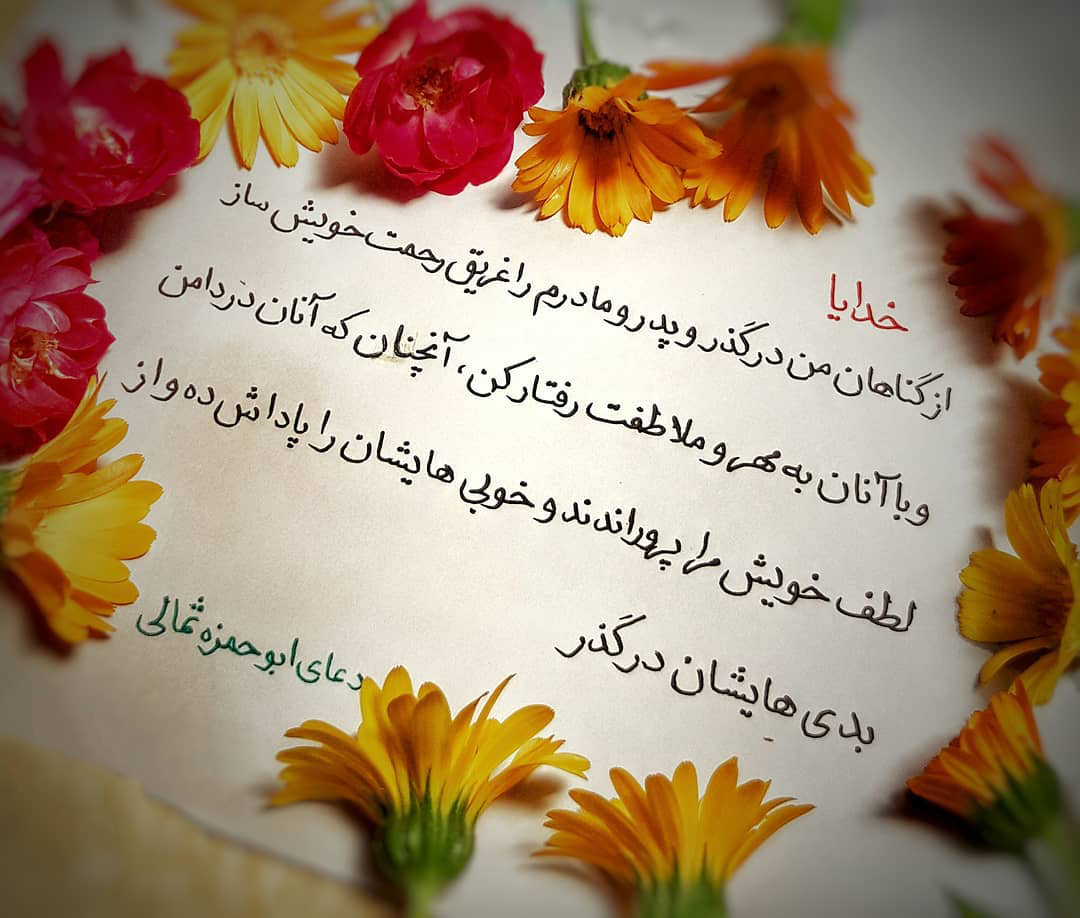 خدایا
از گناهان من درگذر و پدر و مادرم را غریق رحمت خویش ساز
و با آنان به مهر و ملاطفت رفتار کن، آنچنان که آنان در دامن
لطف خویش مرا پروراندند و خوبی هایشان را پاداش ده و از
بدی هایشان درگذر
دعای ابوحمزه ثمالی